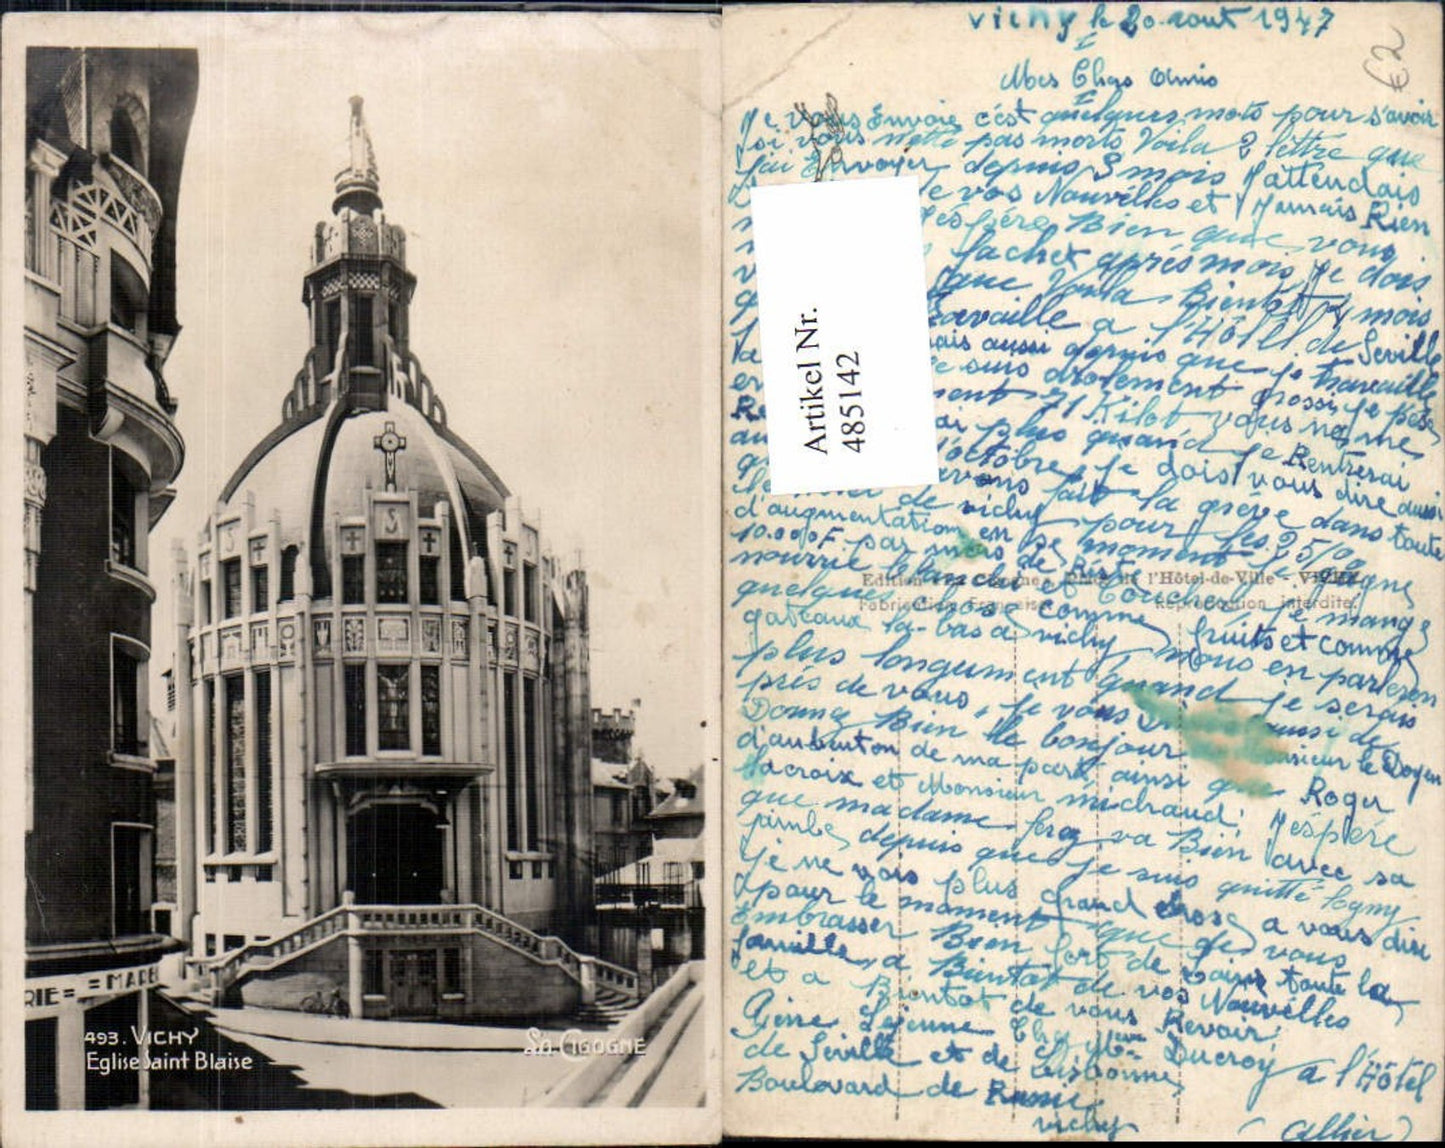 RIE = = MARB
493. VICHY
Eglise Saint Blaise
LA CIGOGNE
Vichy le 20 aout 1947
€2
Mes Chers Amis
Je vous Envoie c'est quelques mots pour s'avoir
si vous n'ette pas morts Voila 2 lettre que
j'ai Envoyer depuis 3 mois J'attendais
de vos Nouvelles et Jamais Rien
J'espère Bien que vous
fachet après moi, Je dois
que Voila Bientôt mois
travaille a l'Hôtel de Seville
mais aussi depuis que je travaille
je suis drolement grossi, je pese
71 Kilot vous ne me
plus quand je Rentrerai
d'octobre, je dois vous dire aussi
avons fait la grève dans toute
de vichy pour les 25%
d'augmentation en ce moment je gagne
10.000F. par mois
nourrie et Coucher je mange
quelques chose comme fruits et comme
gateaux la-bas a vichy nous en parleron
plus longuement quand je serais
près de vous, je vous aussi de
Donne Bien le bonjour Monsieur le Doyen
d'aubenton de ma part, ainsi que Roger
Lacroix et Monsieur michaud. J'espère
que madame va Bien avec sa
jambe, depuis que je suis quitté
Je ne vois plus grand chose a vous dire
pour le moment que de vous
Embrasser Bien fort de toute la
famille, a Bientôt de vos Nouvelles
et a Bientot de vous Revoir.
Lejeune Chez Mme Ducroy a l'Hôtel
de Seville et de Lisbonne
Boulevard de Russie
vichy (Allier)
Edition "La Cigogne", de l'Hôtel-de-Ville - VICHY
Fabrication Française Reproduction interdite.
Artikel Nr.
485142